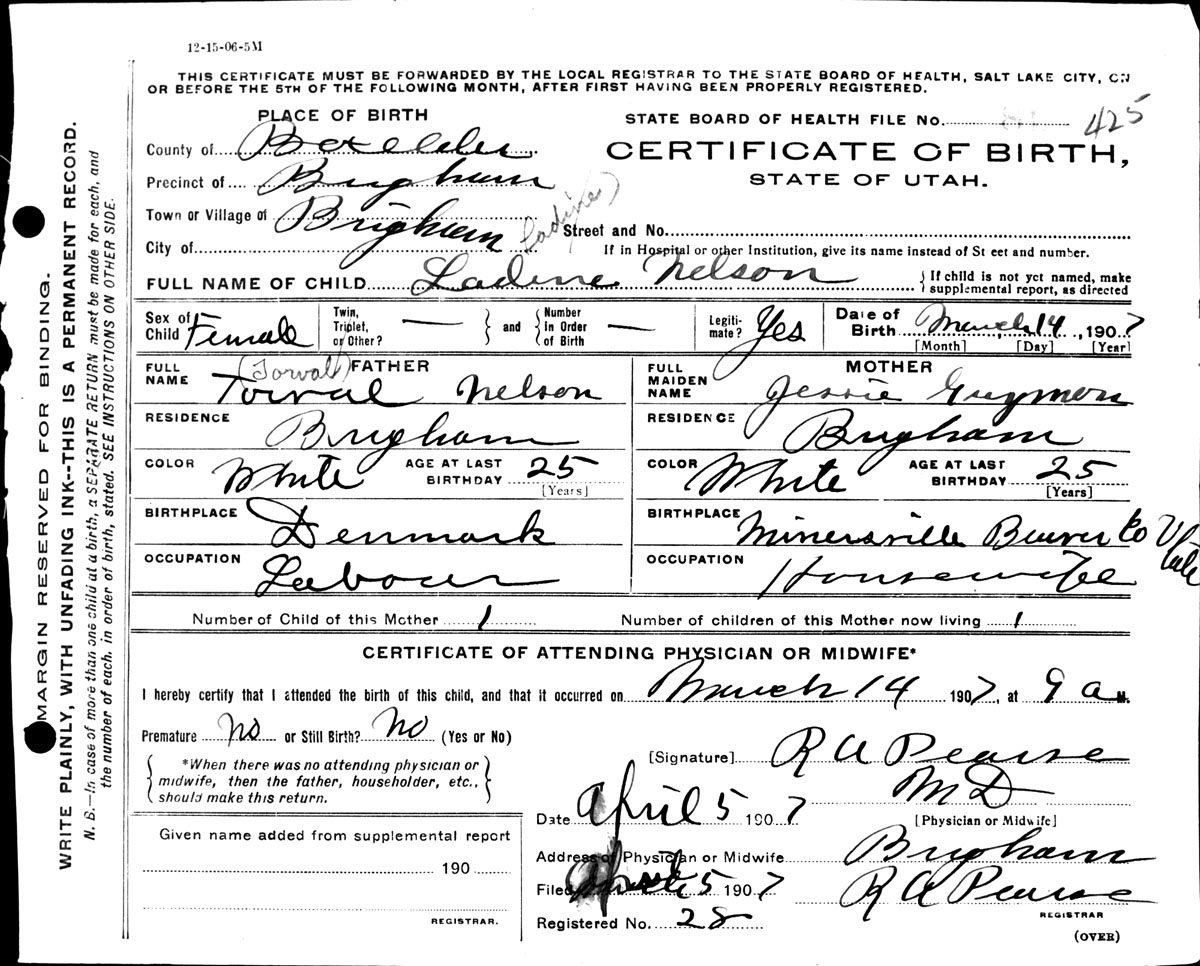 12-15-06-5M
THIS CERTIFICATE MUST BE FORWARDED BY THE LOCAL REGISTRAR TO THE STATE BOARD OF HEALTH, SALT LAKE CITY, ON
OR BEFORE THE 5TH OF THE FOLLOWING MONTH, AFTER FIRST HAVING BEEN PROPERLY REGISTERED.
PLACE OF BIRTH
STATE BOARD OF HEALTH FILE No. 425
County of Boxelder
CERTIFICATE OF BIRTH,
Precinct of Brigham
STATE OF UTAH.
Town or Village of Brigham
(Ladine)
Street and No.
City of
If in Hospital or other Institution, give its name instead of St eet and number.
FULL NAME OF CHILD Ladine Nelson
If child is not yet named, make
supplemental report, as directed
Sex of Child Female
Twin, Triplet, or Other? —
and
Number in Order of Birth —
Legiti-mate? Yes
Date of Birth March 14, 1907
[Month] [Day] [Year]
FATHER
FULL NAME (Torval) Torval Nelson
MOTHER
FULL MAIDEN NAME Jessie Guymon
RESIDENCE Brigham
RESIDENCE Brigham
COLOR White AGE AT LAST BIRTHDAY 25 [Years]
COLOR White AGE AT LAST BIRTHDAY 25 [Years]
BIRTHPLACE Denmark
BIRTHPLACE Minersville Beaver Co Utah
OCCUPATION Labour
OCCUPATION Housewife
Number of Child of this Mother 1
Number of children of this Mother now living 1
CERTIFICATE OF ATTENDING PHYSICIAN OR MIDWIFE*
I hereby certify that I attended the birth of this child, and that it occurred on March 14 1907, at 9 a M.
Premature No or Still Birth? No (Yes or No)
*When there was no attending physician or
midwife, then the father, householder, etc.,
should make this return.
[Signature] R A Pearse
M D
[Physician or Midwife]
Date April 5 1907
Given name added from supplemental report
190
REGISTRAR.
Address of Physician or Midwife Brigham
Filed April 5 1907 R A Pearse
REGISTRAR
Registered No. 28
(OVER)
MARGIN RESERVED FOR BINDING.
WRITE PLAINLY, WITH UNFADING INK--THIS IS A PERMANENT RECORD.
N. B.—In case of more than one child at a birth, a SEPARATE RETURN must be made for each, and
the number of each, in order of birth, stated. SEE INSTRUCTIONS ON OTHER SIDE.